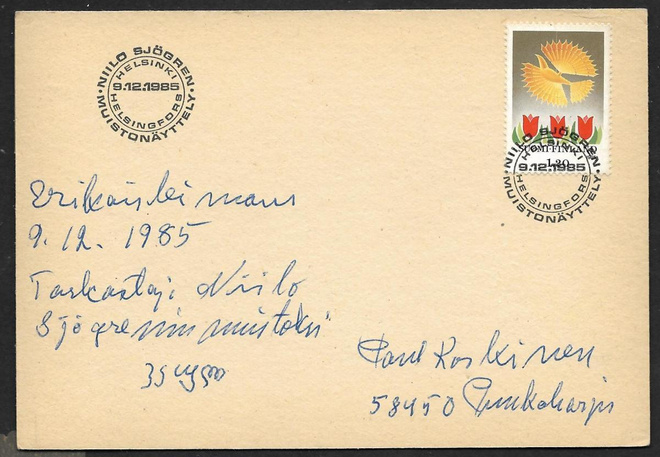 NIILO SJÖGREN
HELSINKI
9.12.1985
HELSINGFORS
MUISTONÄYTTELY
SUOMI-FINLAND
1,20
NIILO SJÖGREN
HELSINKI
9.12.1985
HELSINGFORS
MUISTONÄYTTELY
Erikoisleimaus
9.12. 1985
Tarkastaja Niilo
Sjögrenin muistoksi
Paul Koskinen
58450 Punkaharju